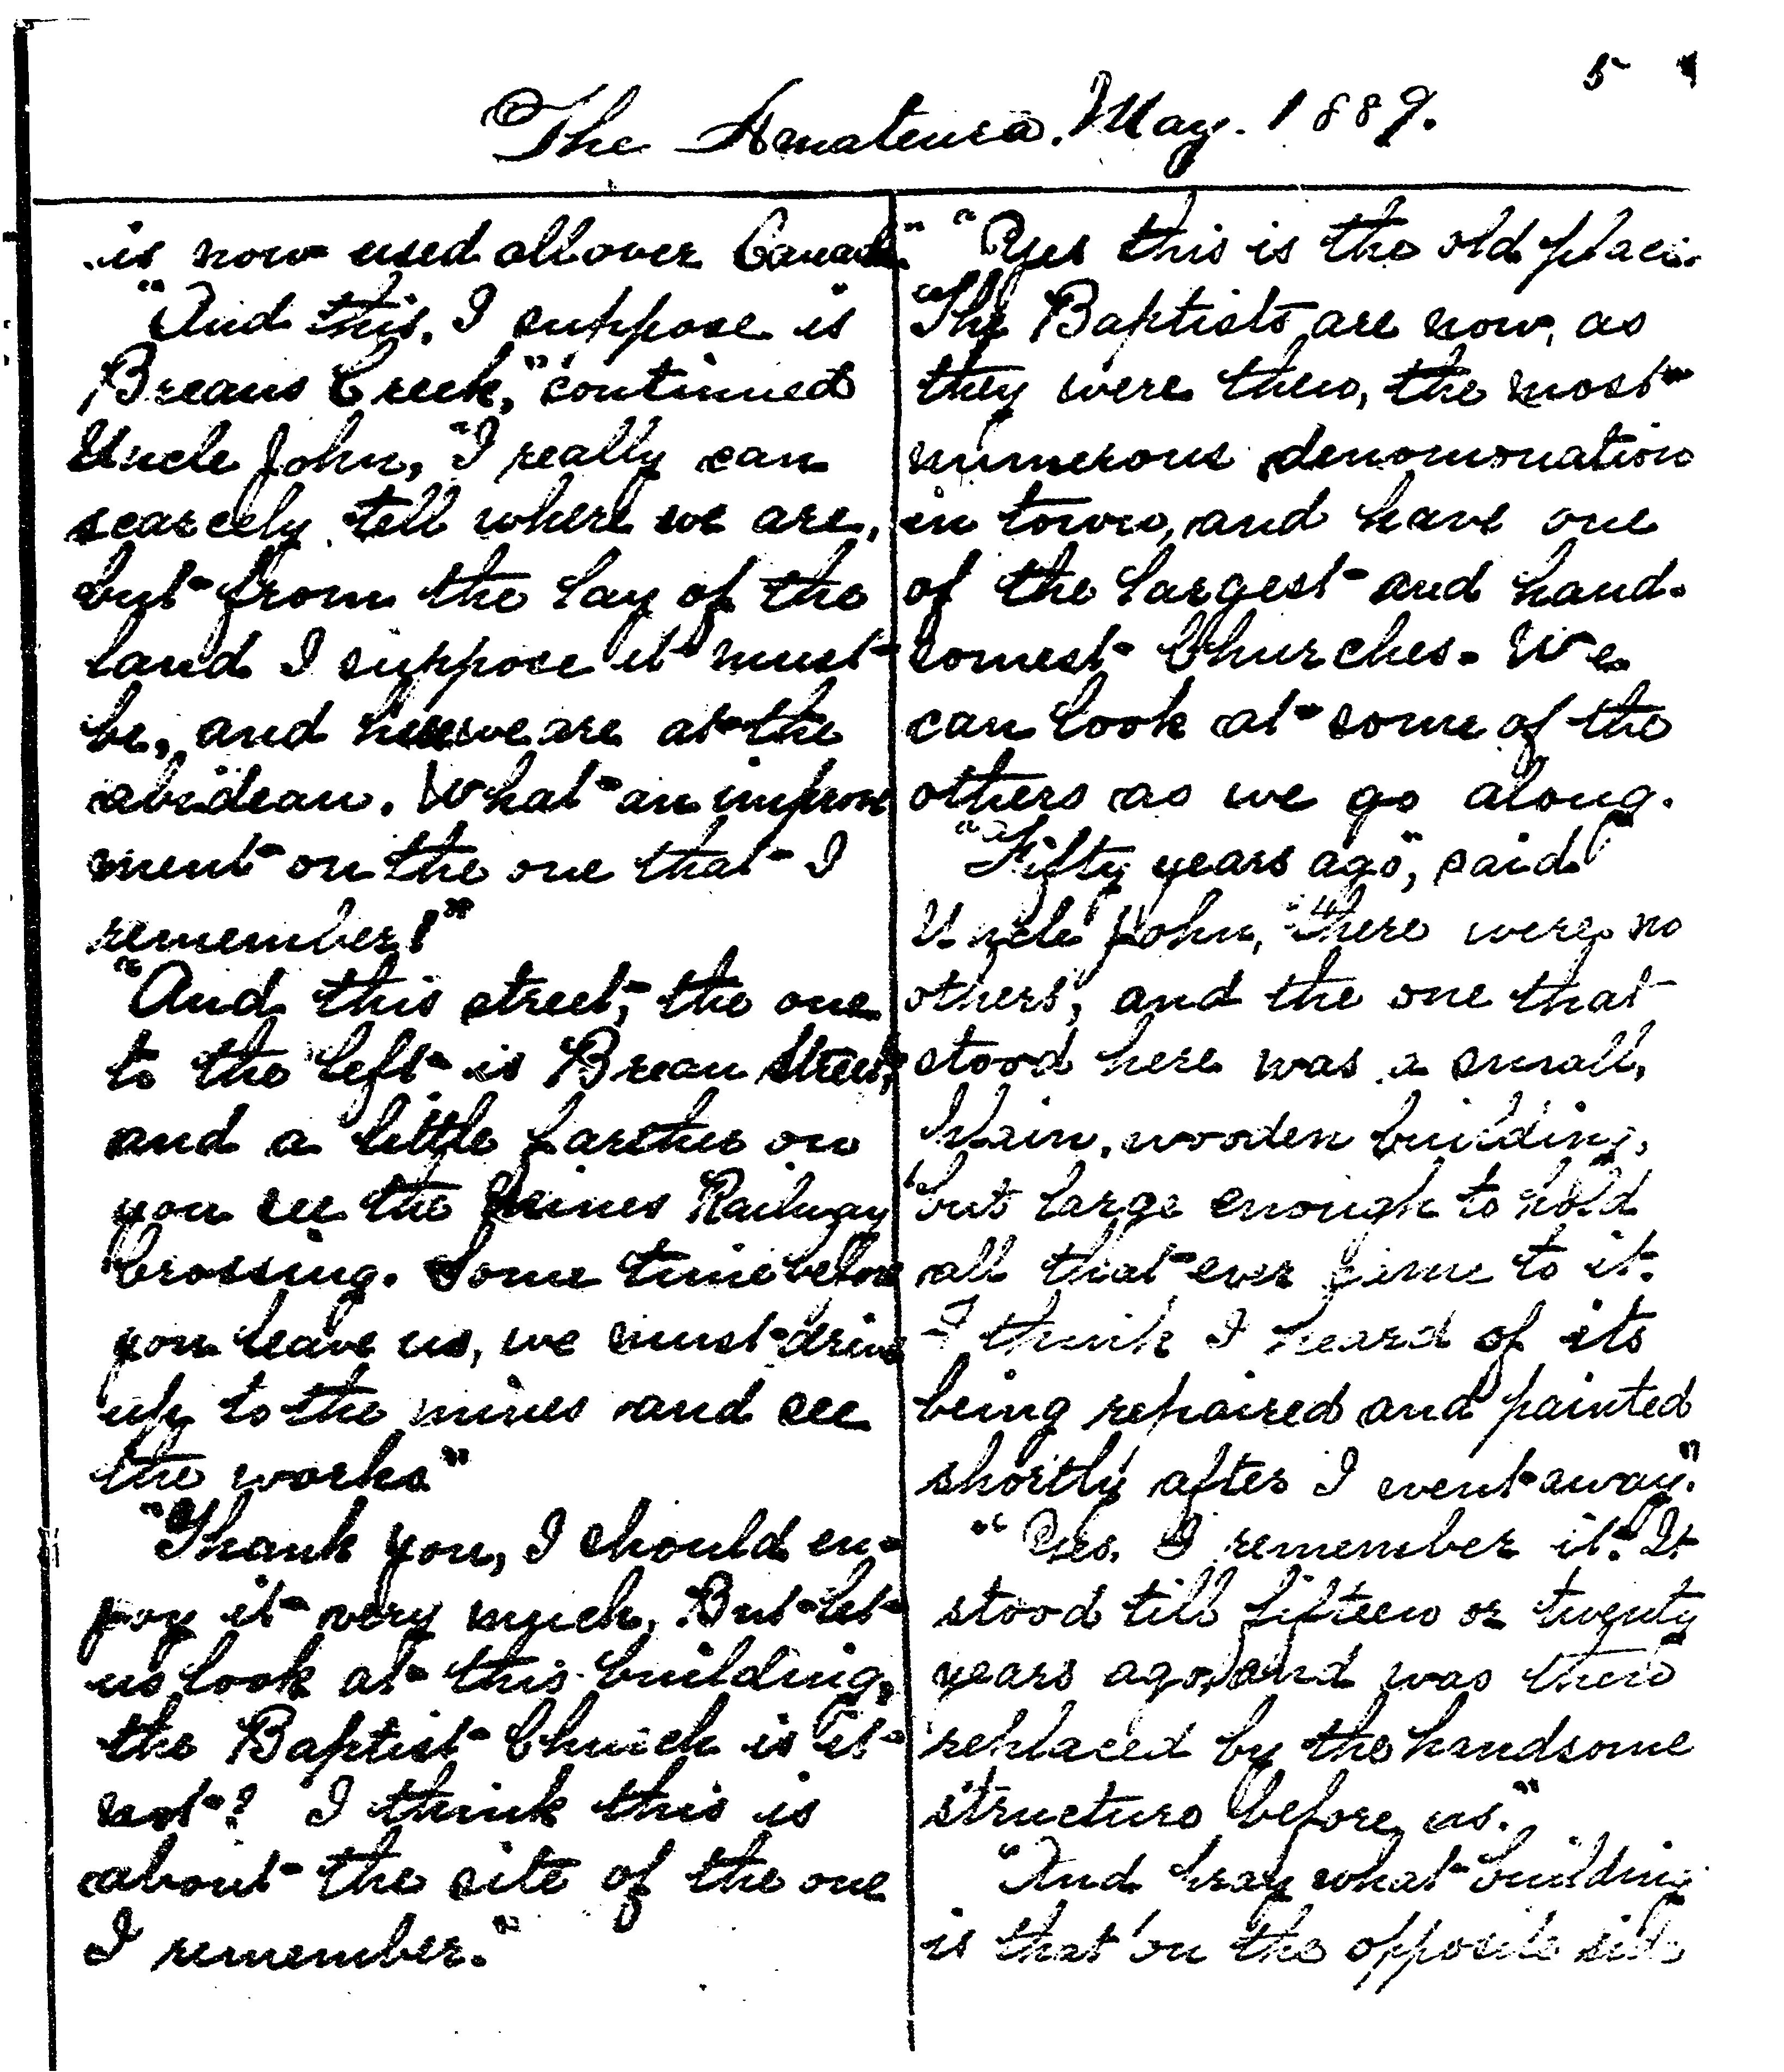 5
The Amateur. May. 1889.
is now used all over Canada."
"And this, I suppose is
Breaus Creek," continued
Uncle John, "I really can
scarcely tell where we are,
but from the lay of the
land I suppose it must
be, and here we are at the
abideau. What an improve
ment on the one that I
remember!"
"And this street, the one
to the left is Breau Street,
and a little farther on
you see the Mines Railway
Crossing. Some time before
you leave us, we must drive
up to the mines and see
the works"
"Thank you, I should en-
joy it very much. But let
us look at this building,
the Baptist Church is it
not? I think this is
about the site of the one
I remember."
"Yes this is the old place.
The Baptists are now, as
they were then, the most
numerous denomonation
in town, and have one
of the largest and hand-
somest Churches. We
can look at some of the
others as we go along.
"Fifty years ago", said
Uncle John, "there were no
others, and the one that
stood here was a small,
plain, wooden building,
but large enough to hold
all that ever came to it.
I think I heard of its
being repaired and painted
shortly after I went away."
"Yes, I remember it. It
stood till fifteen or twenty
years ago, and was then
replaced by the handsome
structure before us."
"And pray what building
is that on the opposite side